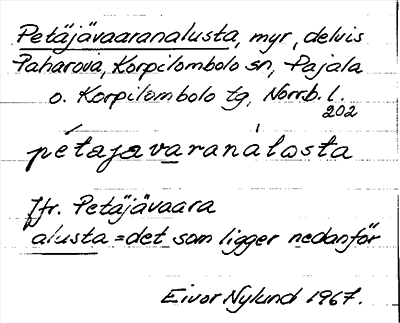 Petäjävaaranalusta, myr, delvis
Paharova, Korpilombolo sn, Pajala
o. Korpilombolo tg, Norrb. l.
202
pétajavaranàlosta
ffr. Petäjävaara
alusta = det som ligger nedanför
Eivor Nylund 1967.